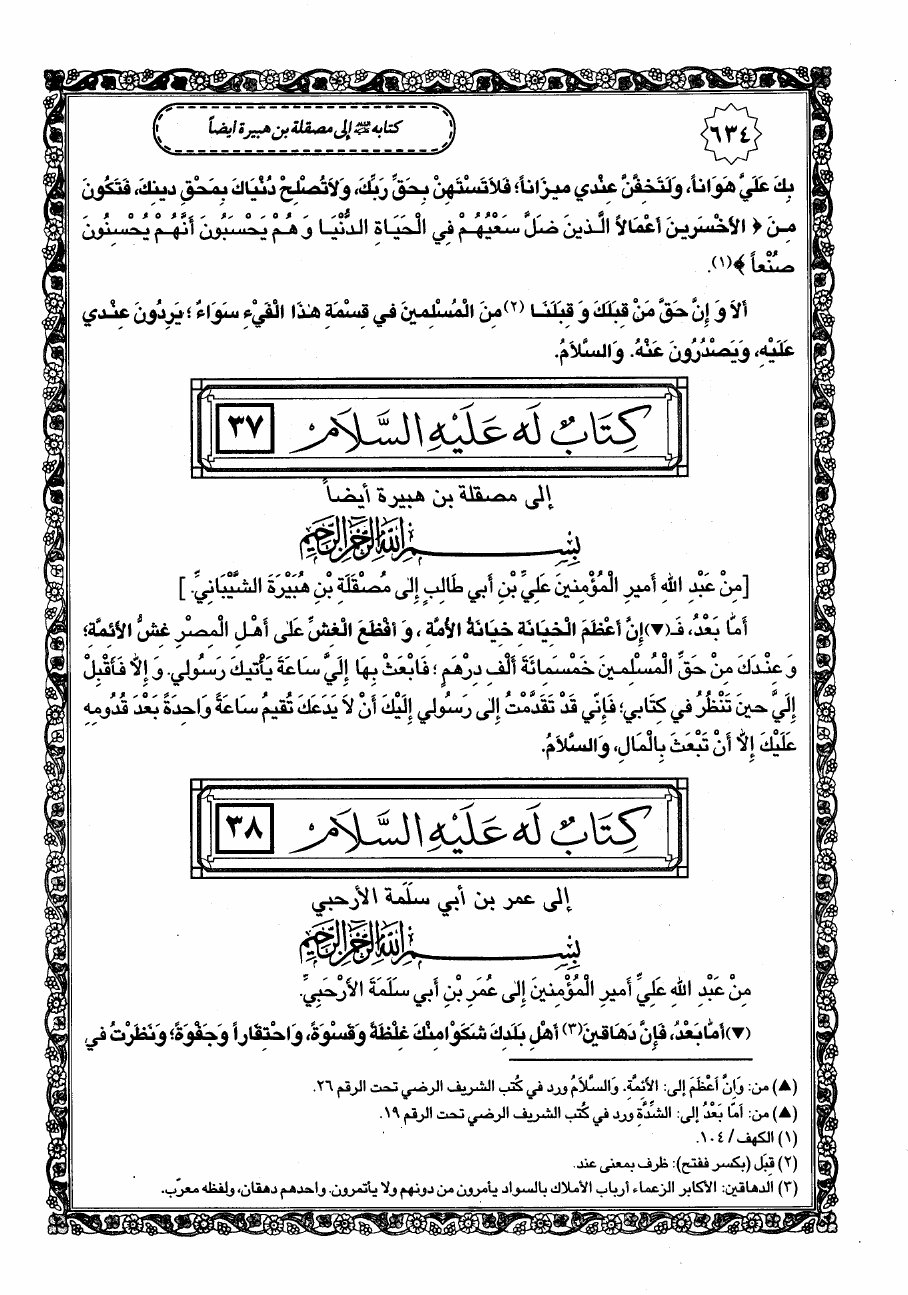 ٦٣٤
كتابه ﷺ إلى مصقلة بن هبيرة أيضاً
بِكَ عَلَيَّ هَوَاناً، وَلَتَخِفَّنَّ عِنْدي ميزَاناً؛ فَلاَ تَسْتَهِنْ بِحَقِّ رَبِّكَ، وَلاَ تُصْلِحْ دُنْيَاكَ بِمَحْقِ دينِكَ، فَتَكُونَ
مِنَ ﴿ الأخْسَرينَ أعْمَالاً الَّذينَ ضَلَّ سَعْيُهُمْ فِي الْحَيَاةِ الدُّنْيَا وَ هُمْ يَحْسَبُونَ أنَّهُمْ يُحْسِنُونَ
صُنْعاً ﴾(١).
ألاَ وَ إنَّ حَقَّ مَنْ قِبَلَكَ وَ قِبَلَنَا (٢) مِنَ الْمُسْلِمينَ في قِسْمَةِ هٰذَا الْفَيْءِ سَوَاءٌ ؛ يَرِدُونَ عِنْدي
عَلَيْهِ، وَيَصْدُرُونَ عَنْهُ. وَالسَّلاَمُ.
كِتَابٌ لَه عَلَيْهِ السَّلاَم ٣٧
إلى مصقلة بن هبيرة أيضاً
بِسْمِ اللهِ الرَّحْمٰنِ الرَّحيمِ
[مِنْ عَبْدِ اللهِ أميرِ الْمُؤْمِنينَ عَلِيِّ بْنِ أبي طَالِبٍ إلى مُصْقَلَةَ بْنِ هُبَيْرَةَ الشَّيْبَانِيِّ. ]
أمَّا بَعْدُ، فَـ(▼) إنَّ أعْظَمَ الْخِيَانَةِ خِيَانَةُ الأُمَّةِ ، وَ أفْظَعَ الْغِشِّ عَلى أهْلِ الْمِصْرِ غِشُّ الأئِمَّةِ؛
وَ عِنْدَكَ مِنْ حَقِّ الْمُسْلِمينَ خَمْسُمائَةِ ألْفِ دِرْهَمٍ ؛ فَابْعَثْ بِهَا إلَيَّ سَاعَةَ يَأتيكَ رَسُولي. وَ إلاَّ فَأقْبِلْ
إلَيَّ حينَ تَنْظُرُ في كِتَابي؛ فَإنّي قَدْ تَقَدَّمْتُ إلى رَسُولي إلَيْكَ أنْ لاَ يَدَعَكَ تُقيمُ سَاعَةً وَاحِدَةً بَعْدَ قُدُومِهِ
عَلَيْكَ إلاَّ أنْ تَبْعَثَ بِالْمَالِ، وَالسَّلاَمُ.
كِتَابٌ لَه عَلَيْهِ السَّلاَم ٣٨
إلى عمر بن أبي سلَمة الأرحبي
بِسْمِ اللهِ الرَّحْمٰنِ الرَّحيمِ
مِنْ عَبْدِ اللهِ عَلِيٍّ أميرِ الْمُؤْمِنينَ إلى عُمَرِ بْنِ أبي سَلَمَةَ الأرْحَبِيِّ.
(▼) أمَّا بَعْدُ، فَإنَّ دَهَاقينَ(٣) أهْلِ بَلَدِكَ شَكَوْا مِنْكَ غِلْظَةً وَ قَسْوَةً، وَ احْتِقَاراً وَ جَفْوَةً؛ وَ نَظَرْتُ في
(▲) من: وَإنَّ أعْظَمَ إلى: الأئِمَّةِ. وَالسَّلاَمُ ورد في كُتب الشريف الرضي تحت الرقم ٢٦.
(▲) من: أمَّا بَعْدُ إلى: الشِّدَّةِ ورد في كُتب الشريف الرضي تحت الرقم ١٩.
(١) الكهف / ١٠٤.
(٢) قِبَل (بكسر ففتح): ظرف بمعنى عند.
(٣) الدهاقين: الأكابر الزعماء أرباب الأملاك بالسواد يأمرون من دونهم ولا يأتمرون. واحدهم دهقان، ولفظه معرّب.